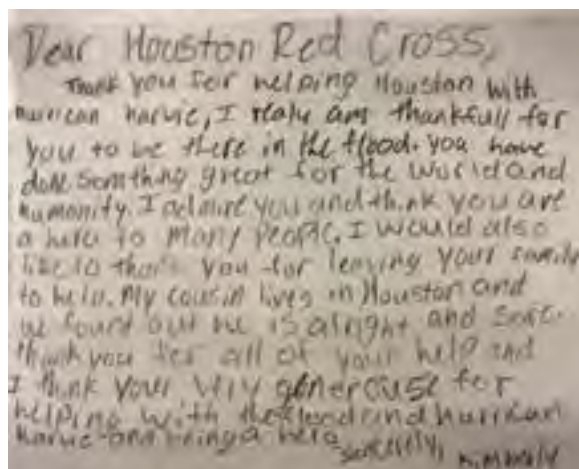 Dear Houston Red Cross,
Thank you for helping Houston with
hurrican harvie, I realy am thankfull for
you to be there in the flood. you have
done somthing great for the world and
humanity. I admire you and think you are
a hero to many people. I would also
like to thank you for leaving your family
to help. My cousin lives in Houston and
we found out he is alright and safe.
thank you for all of your help and
I think your very generouse for
helping with the flood and hurrican
harvie and being a hero
sincerely, kimberly